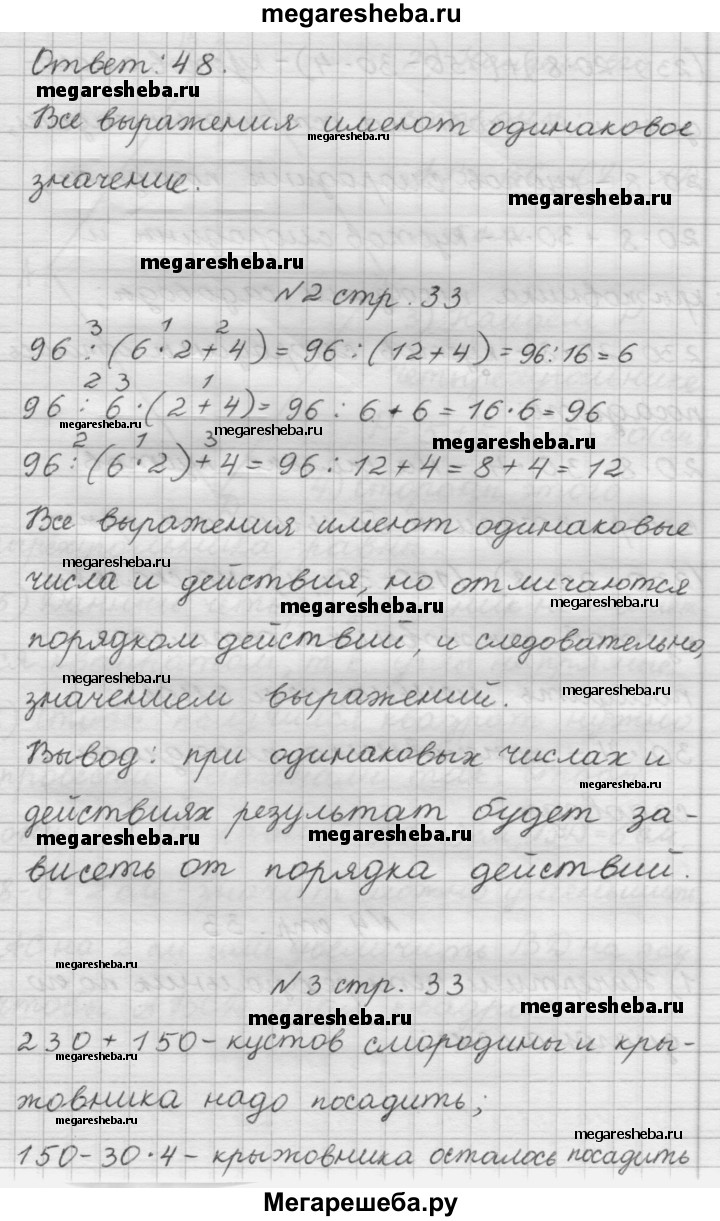 megaresheba.ru
Ответ: 48.
megaresheba.ru
Все выражения имеют одинаковое
megaresheba.ru
значение.
megaresheba.ru
megaresheba.ru
№2 стр. 33
3 1 2
96 : (6 · 2 + 4) = 96 : (12 + 4) = 96 : 16 = 6
2 3 1
96 : 6 · (2 + 4) = 96 : 6 · 6 = 16 · 6 = 96
megaresheba.ru megaresheba.ru
2 1 3 megaresheba.ru
96 : (6 · 2) + 4 = 96 : 12 + 4 = 8 + 4 = 12
Все выражения имеют одинаковые
megaresheba.ru
числа и действия, но отличаются
megaresheba.ru megaresheba.ru
порядком действий, и следовательно,
megaresheba.ru megaresheba.ru
значением выражений.
Вывод: при одинаковых числах и
megaresheba.ru
действиях результат будет за-
megaresheba.ru megaresheba.ru
висеть от порядка действий.
megaresheba.ru
№3 стр. 33
megaresheba.ru megaresheba.ru
230 + 150 - кустов смородины и кры-
megaresheba.ru
жовника надо посадить;
megaresheba.ru megaresheba.ru
150 - 30 · 4 - крыжовника осталось посадить
Мегарешеба.ру